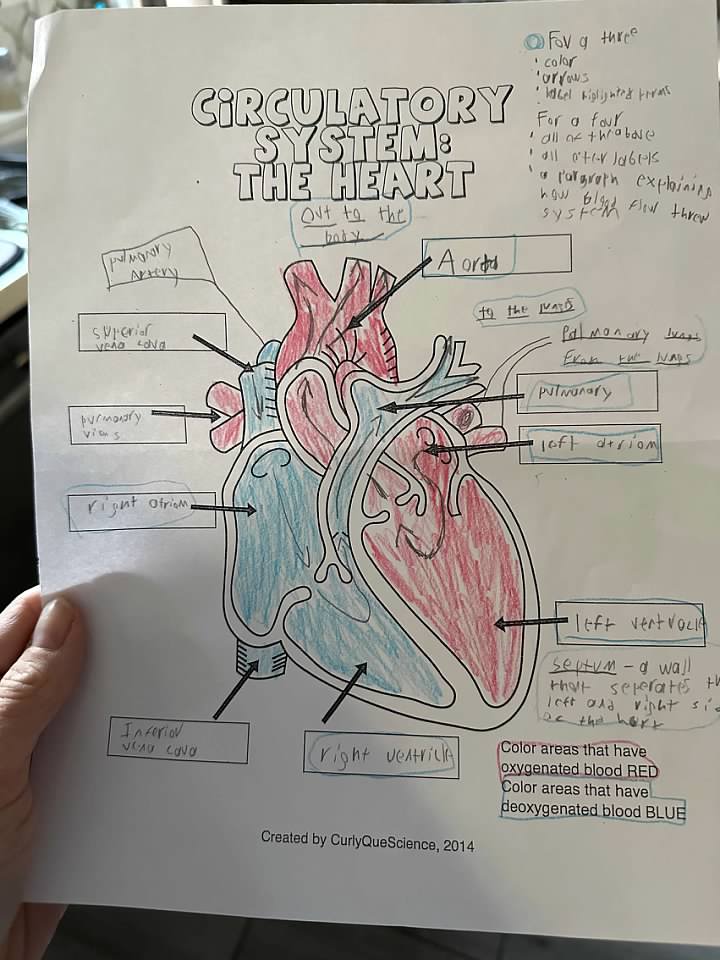 For a three
color
arrows
label highlighted terms
For a four
all of the above
all other labels
a paragraph explaining
how blood flow threw
system
CIRCULATORY
SYSTEM:
THE HEART
Out to the
body
pulmonary
Artery
Aorta
superior
vena cava
to the lungs
Pulmonary
From the lungs
pulmonary
pulmonary
left atriom
right atriom
left ventrocle
septum - a wall
that seperates
left and right
of the hart
Inferior
vena cava
right ventricle
Color areas that have
oxygenated blood RED
Color areas that have
deoxygenated blood BLUE
Created by CurlyQueScience, 2014